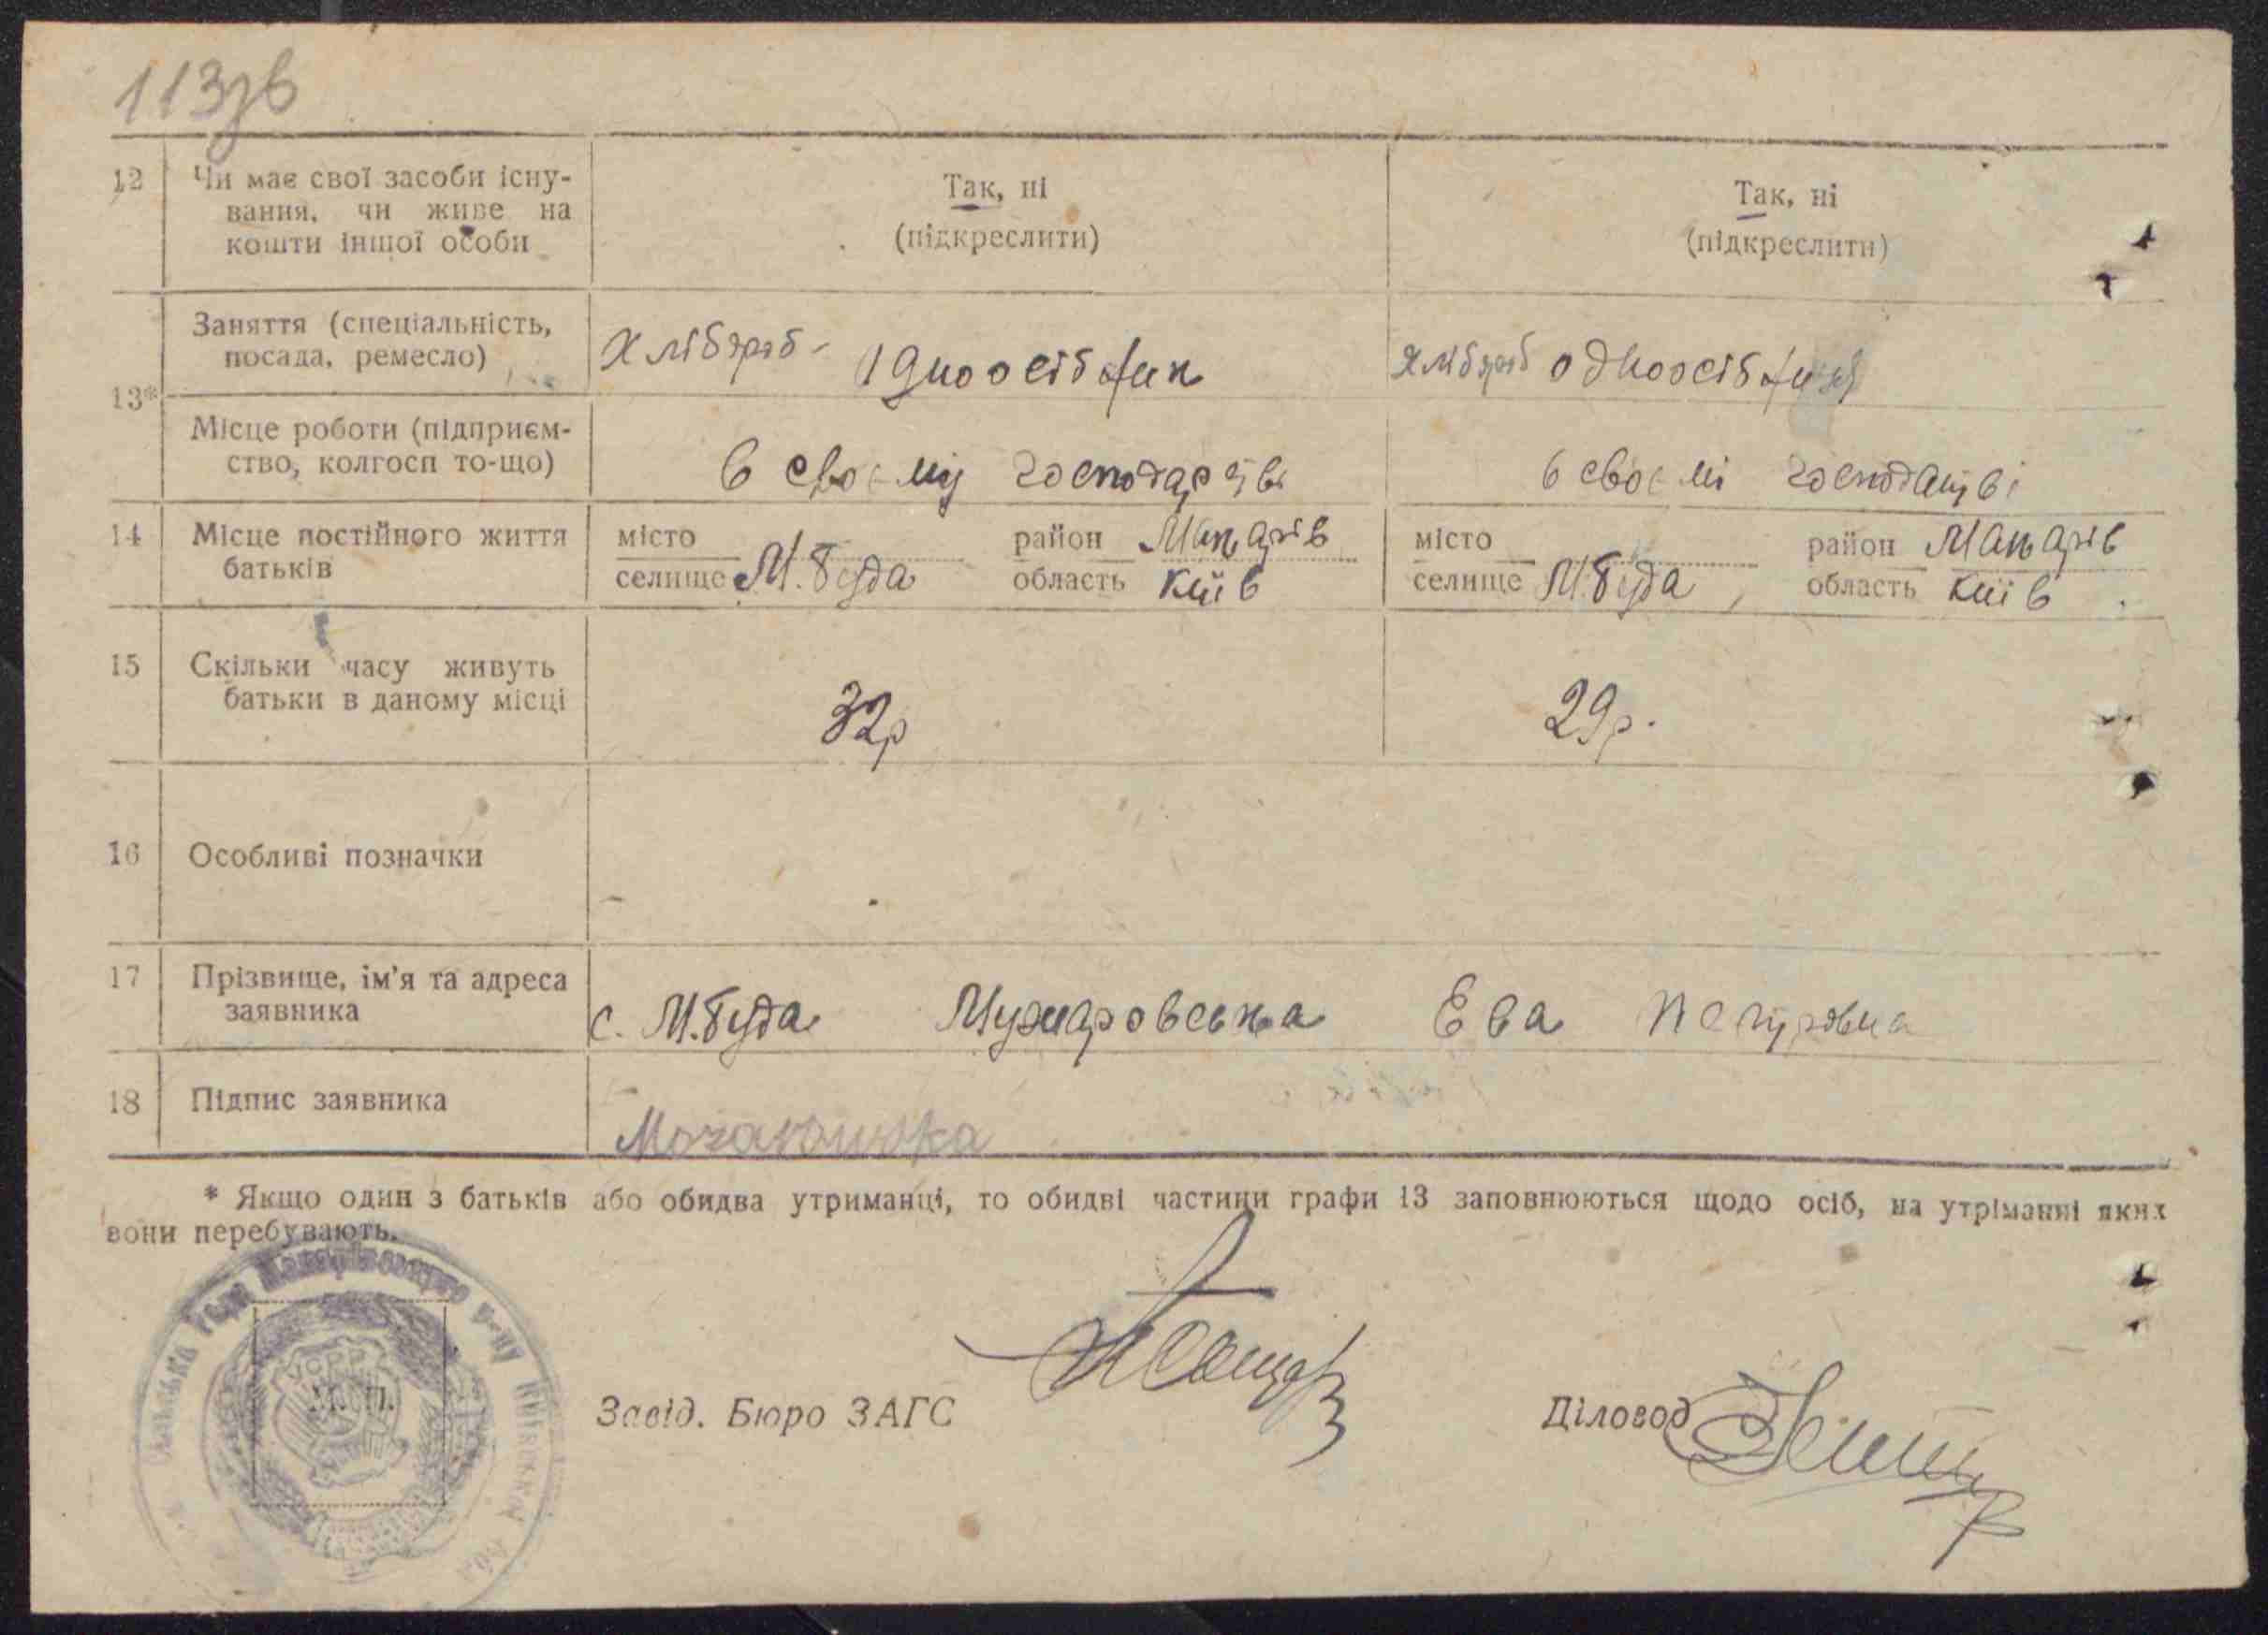 113зв
12 Чи має свої засоби існу-
вання, чи живе на
кошти іншої особи
Так, ні
(підкреслити)
Так, ні
(підкреслити)
13*
Заняття (спеціальність,
посада, ремесло)
Хлібороб - одноосібник
Хлібороб одноосібниця
Місце роботи (підприєм-
ство, колгосп то-що)
в своєму господарстві
в своємі господатві
14 Місце постійного життя
батьків
місто
селище М. Буда
район Макарів
область Київ
місто
селище М. Буда
район Макарів
область Київ
15 Скільки часу живуть
батьки в даному місці
32р
29р.
16 Особливі позначки
17 Прізвище, ім'я та адреса
заявника
с. М. Буда Ева Петровна
18 Підпис заявника
* Якщо один з батьків або обидва утриманці, то обидві частини графи 13 заповнюються щодо осіб, на утріманні яких
вони перебувають.
Рада Макарівського р-ну Київської
УСРР
М. П.
Завід. Бюро ЗАГС
Діловод